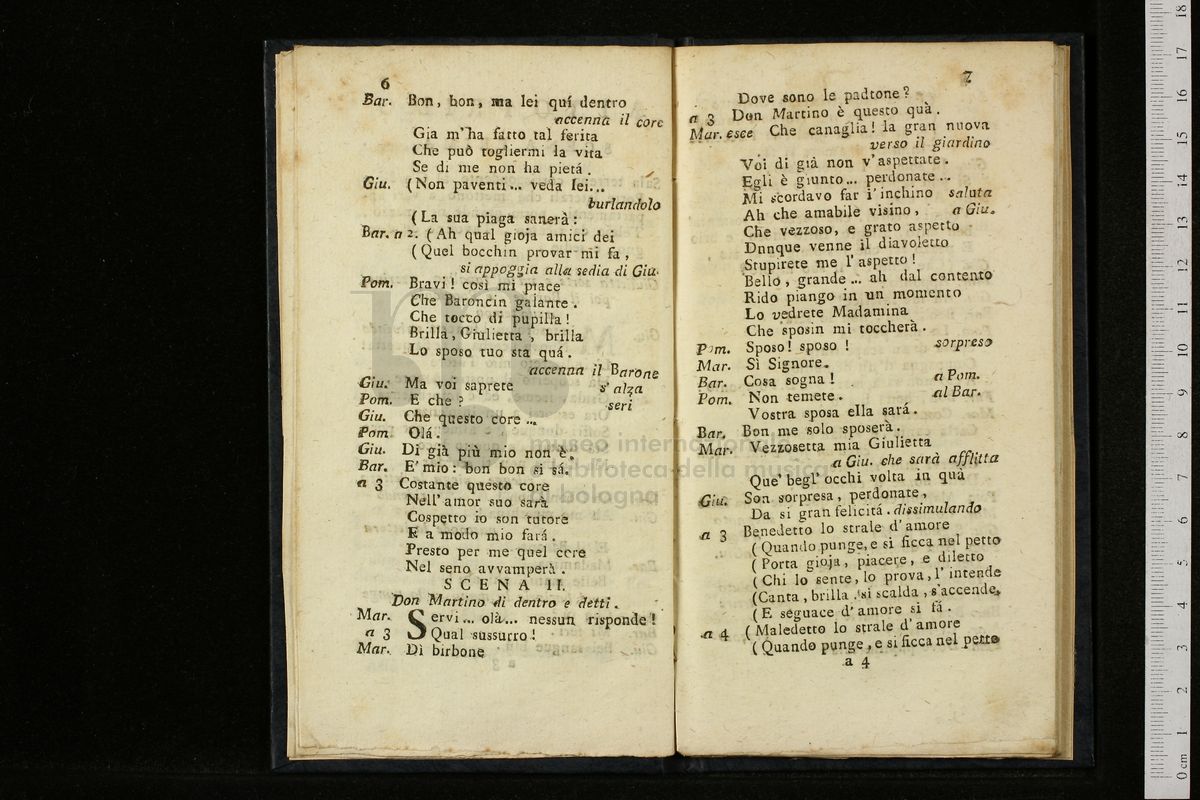 6
Bar. Bon, bon, ma lei quí dentro
accenna il core
Gia m'ha fatto tal ferita
Che può togliermi la vita
Se di me non ha pietá.
Giu. (Non paventi... veda lei...
burlandolo
(La sua piaga sanerà:
Bar. a 2. (Ah qual gioja amici dei
(Quel bocchin provar mi fa,
si appoggia alla sedia di Giu.
Pom. Bravi! così mi piace
Che Baroncin galante.
Che tocco di pupilla!
Brilla, Giulietta, brilla
Lo sposo tuo sta quá.
accenna il Barone
Giu. Ma voi saprete s'alza
Pom. E che? seri
Giu. Che questo core...
Pom. Olá.
Giu. Di già più mio non è.
Bar. E' mio: bon bon si sá.
a 3 Costante questo core
Nell' amor suo sarà
Cospetto io son tutore
E a modo mio fará.
Presto per me quel core
Nel seno avvamperà.
SCENA II.
Don Martino di dentro e detti.
Mar. Servi... olà... nessun risponde!
a 3 Qual sussurro!
Mar. Dì birbone
7
Dove sono le padtone?
a 3 Don Martino è questo quà.
Mar. esce Che canaglia! la gran nuova
verso il giardino
Voi di già non v'aspettate.
Egli è giunto... perdonate..
Mi scordavo far i' inchino saluta
Ah che amabile visino, a Giu.
Che vezzoso, e grato aspetto
Dnnque venne il diavoletto
Stupirete me l' aspetto!
Bello, grande... ah dal contento
Rido piango in un momento
Lo vedrete Madamina
Che sposin mi toccherà.
Pom. Sposo! sposo! sorpreso
Mar. Sì Signore.
Bar. Cosa sogna! a Pom.
Pom. Non temete. al Bar.
Vostra sposa ella sará.
Bar. Bon me solo sposerà.
Mar. Vezzosetta mia Giulietta
a Giu. che sarà afflitta
Que' begl' occhi volta in quà
Giu. Son sorpresa, perdonate,
Da si gran felicitá. dissimulando
a 3 Benedetto lo strale d' amore
(Quando punge, e si ficca nel petto
(Porta gioja, piacere, e diletto
(Chi lo sente, lo prova, l' intende
(Canta, brilla, si scalda, s'accende,
(E seguace d' amore si fá.
a 4 (Maledetto lo strale d' amore
(Quando punge, e si ficca nel petto
a 4
museo internazionale
biblioteca della musica
di bologna
0 cm 1 2 3 4 5 6 7 8 9 10 11 12 13 14 15 16 17 18